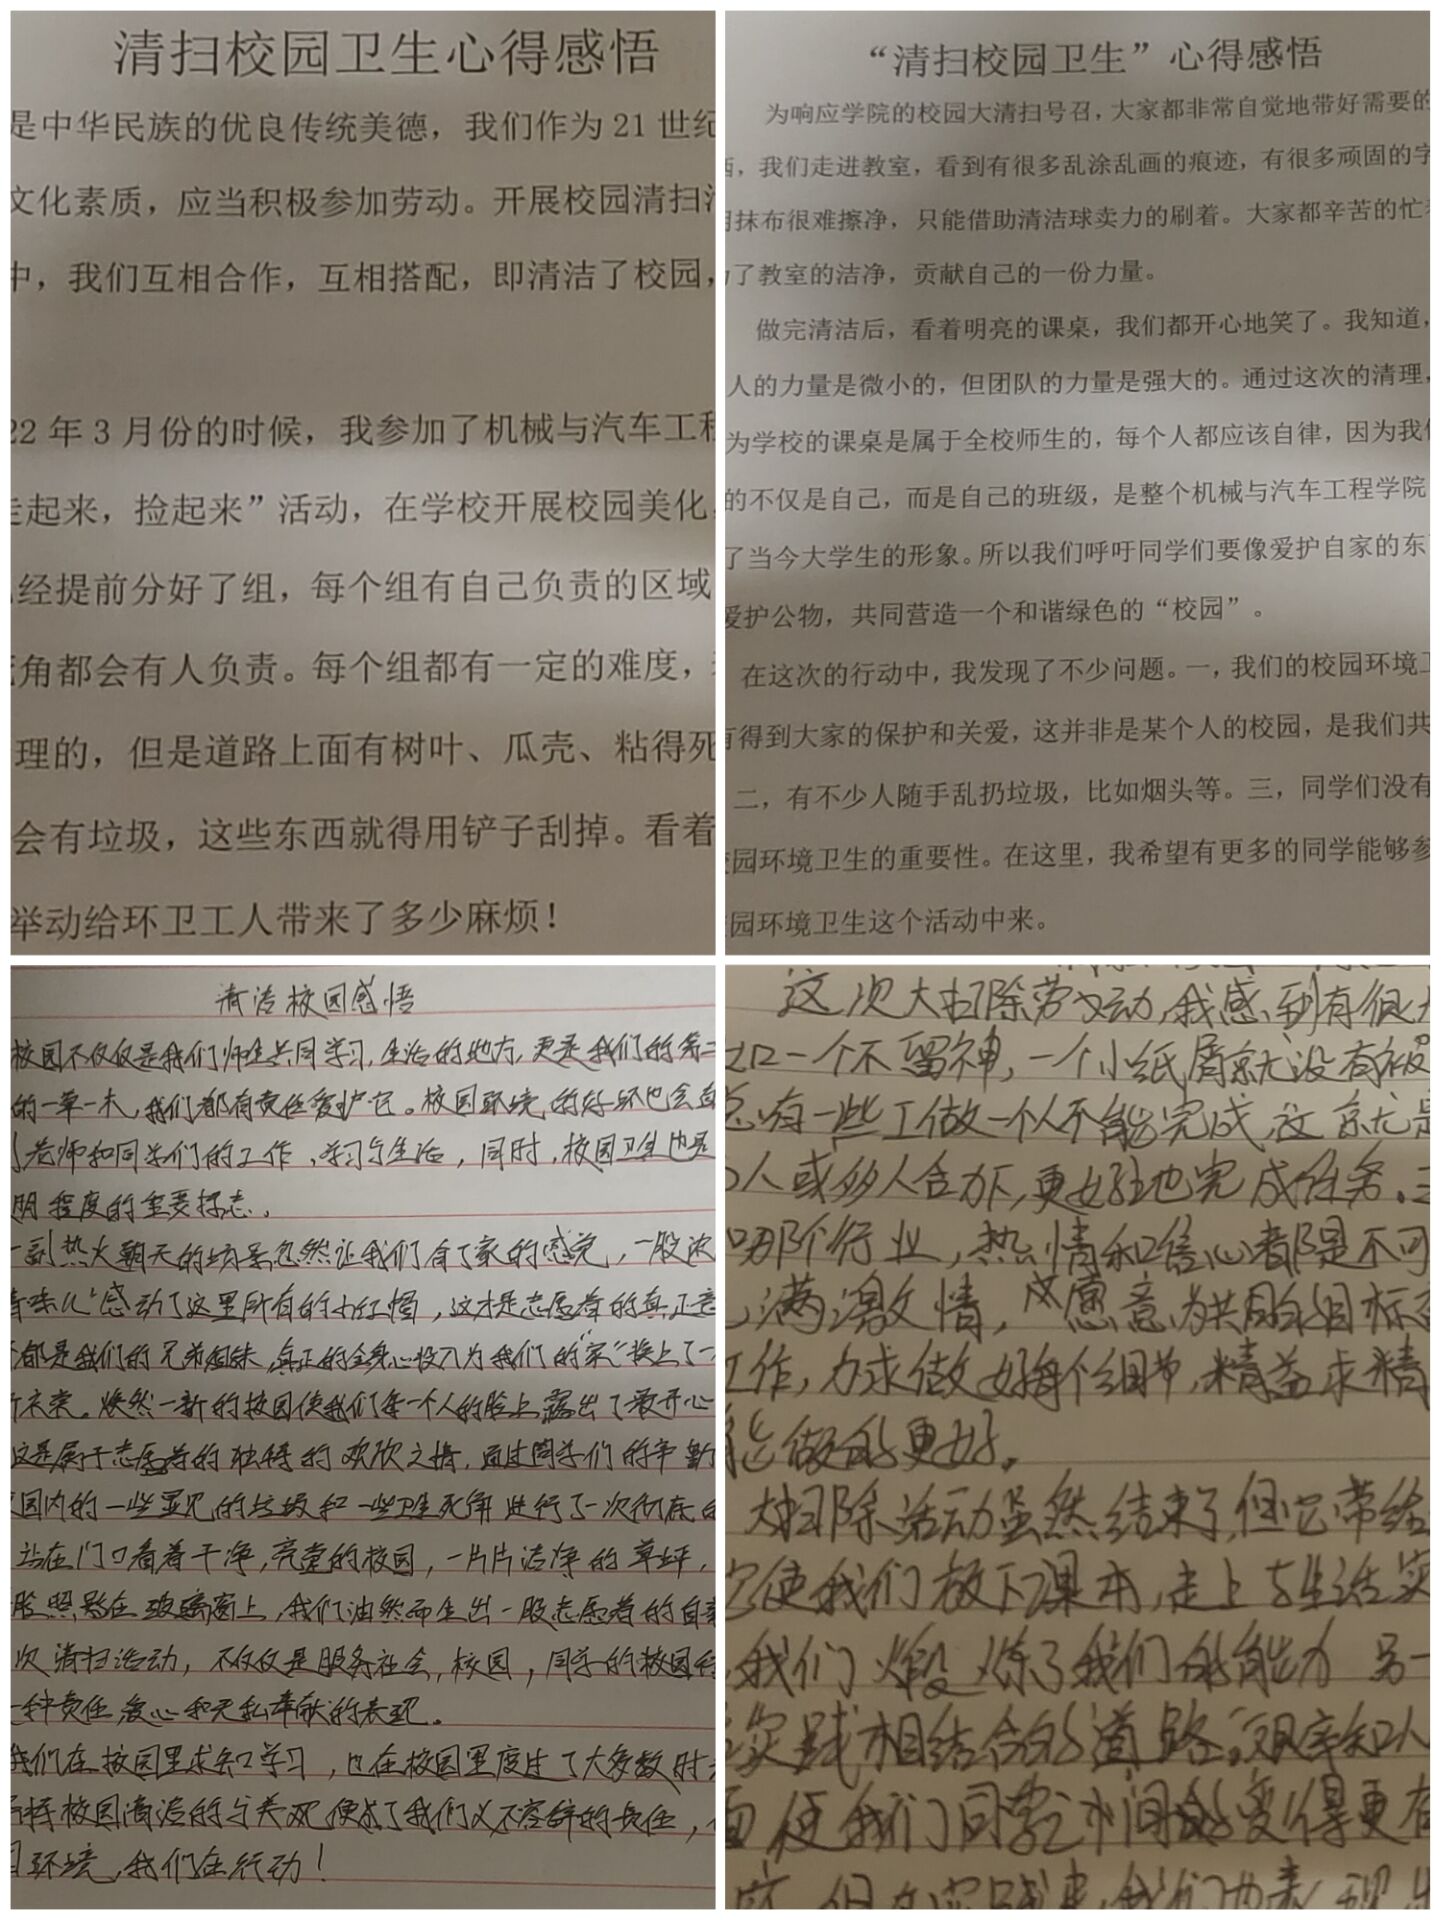 清扫校园卫生心得感悟
是中华民族的优良传统美德，我们作为21世纪
文化素质，应当积极参加劳动。开展校园清扫
中，我们互相合作，互相搭配，即清洁了校园，
22年3月份的时候，我参加了机械与汽车工程
走起来，捡起来”活动，在学校开展校园美化
经提前分好了组，每个组有自己负责的区域
角都会有人负责。每个组都有一定的难度，
理的，但是道路上面有树叶、瓜壳、粘得死
会有垃圾，这些东西就得用铲子刮掉。看着
举动给环卫工人带来了多少麻烦！
“清扫校园卫生”心得感悟
为响应学院的校园大清扫号召，大家都非常自觉地带好需要的
西，我们走进教室，看到有很多乱涂乱画的痕迹，有很多顽固的字
用抹布很难擦净，只能借助清洁球卖力的刷着。大家都辛苦的忙
了教室的洁净，贡献自己的一份力量。
做完清洁后，看着明亮的课桌，我们都开心地笑了。我知道，
人的力量是微小的，但团队的力量是强大的。通过这次的清理，
为学校的课桌是属于全校师生的，每个人都应该自律，因为我们
的不仅是自己，而是自己的班级，是整个机械与汽车工程学院
了当今大学生的形象。所以我们呼吁同学们要像爱护自家的东
爱护公物，共同营造一个和谐绿色的“校园”。
在这次的行动中，我发现了不少问题。一，我们的校园环境卫
有得到大家的保护和关爱，这并非是某个人的校园，是我们共
二，有不少人随手乱扔垃圾，比如烟头等。三，同学们没有
园环境卫生的重要性。在这里，我希望有更多的同学能够参
园环境卫生这个活动中来。
清洁校园感悟
校园不仅仅是我们师生共同学习，生活的地方，更是我们的第二
的一草一木，我们都有责任爱护它。校园环境的好坏也会直
老师和同学们的工作、学习与生活，同时，校园卫生也是
明程度的重要标志。
一副热火朝天的场景忽然让我们有了家的感觉，一股浓
味儿”感动了这里所有的小红帽，这才是志愿者的真正意
都是我们的兄弟姐妹，真正的全身心投入为我们的“家”换上了一
新衣裳。焕然一新的校园使我们每一个人的脸上露出了最开心
这是属于志愿者的独特的欢欣之情，通过同学们的辛勤
园内的一些显见的垃圾和一些卫生死角进行了一次彻底的
站在门口看着干净，亮堂的校园，一片片洁净的草坪，
脸照影在玻璃窗上，我们油然而生出一股志愿者的自豪
次清扫活动，不仅仅是服务社会，校园，同学的校园行
一种责任，爱心和无私奉献的表现。
我们在校园里求知学习，也在校园里度过了大多数时
持校园清洁的与美观便成了我们义不容辞的责任，
环境，我们在行动！
这次大扫除劳动，我感到有很大
一个不留神，一个小纸屑就没有被
总有一些工做一个人不能完成，这就是
人或多人合办下，更好地完成任务。
哪个行业，热情和信心都是不可
满激情，愿意为共同的目标
工作，力求做好每个细节，精益求精
能做的更好。
大扫除活动虽然结束了，但它带给
它使我们放下课本，走上与生活实
我们煅炼了我们的能力 另一
实践相结合的道路，艰辛知人
面使我们同学之间的变得更有